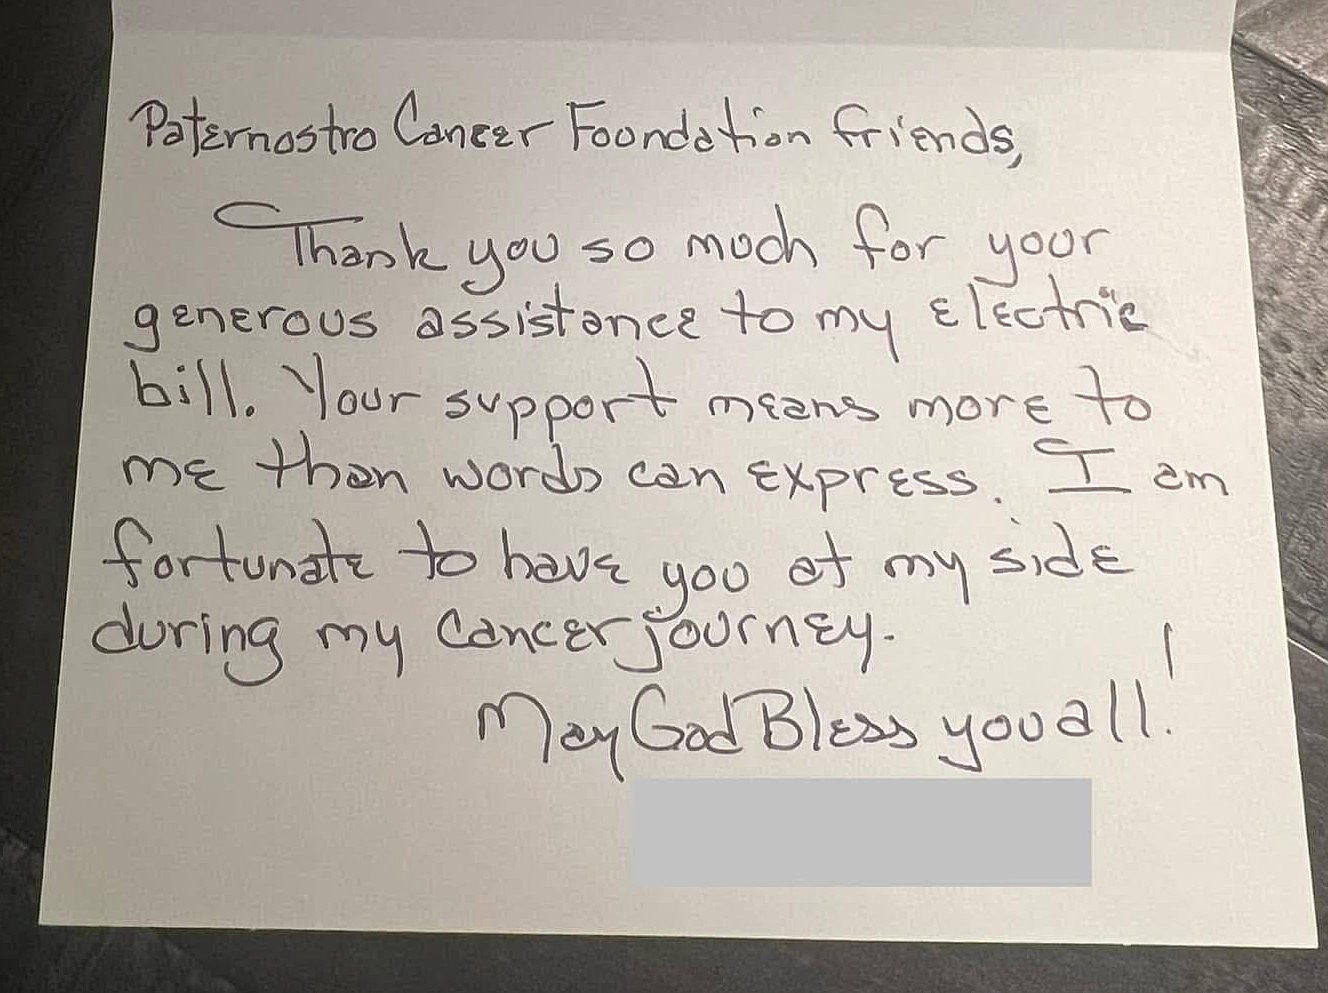 Paternostro Cancer Foundation friends,
Thank you so much for your
generous assistance to my electric
bill. Your support means more to
me than words can express. I am
fortunate to have you at my side
during my cancer journey.
May God Bless you all!